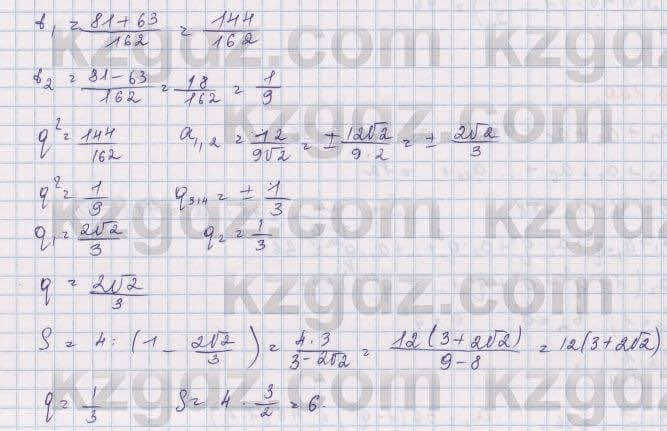 b₁ = (81+63)/162 = 144/162
b₂ = (81-63)/162 = 18/162 = 1/9
q² = 144/162 a₁,₂ = 12/(9√2) = ± 12√2/(9·2) = ± 2√2/3
q² = 1/9 q₃,₄ = ± 1/3
q₁ = 2√2/3 q₂ = 1/3
q = 2√2/3
S = 4 : (1 - 2√2/3) = 4·3/(3-2√2) = 12(3+2√2)/(9-8) = 12(3+2√2)
q = 1/3 S = 4 · 3/2 = 6.
kzgdz.com
kzgdz.com
kzgdz.com
kzgdz.com
kzgdz.com